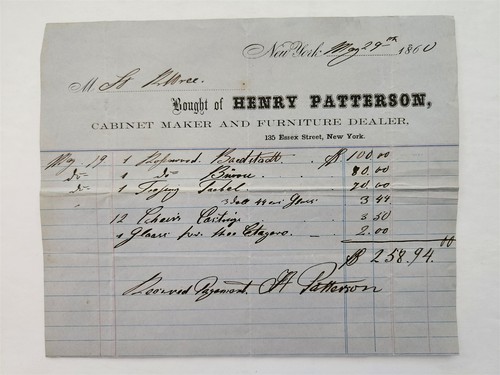 New York May 29th 1860
M
Bought of HENRY PATTERSON,
CABINET MAKER AND FURNITURE DEALER,
135 Essex Street, New York.
May 29 1 Rosewood Baedstadt $ 100.00
do 1 do Buroe 80.00
do 1 Tabel 70.00
Glass 3.44
12 Chairs Castings 3.50
1 Glass for the Etagere 2.00
$ 258.94
Received Payement H Patterson